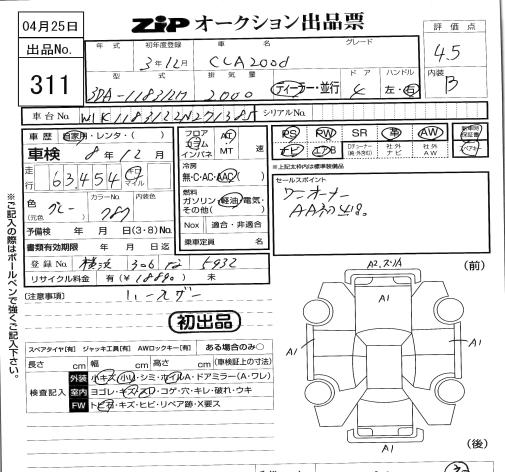 04月25日
ZiP オークション出品票
評価点
4.5
内装
B
出品No.
311
年式 初年度登録 車名 グレード
3年12月 CLA200d
型式 排気量 ドア ハンドル
3DA-118312M 2000 ディーラー・並行 4 左・右
車台No. W1K1183122N271385 シリアルNo.
車歴 自家用・レンタ・( )
車検 8年12月
走行 63,454 キロ マイル
色 (元色) グレー カラーNo. 787 内装色
予備検 年 月 日(3・8)No.
書類有効期限 年 月 日迄
登録No. 横浜 306 5932
リサイクル料金 有(¥18890) 未
フロア コラム インパネ AT MT 速
冷房
無・C・AC・AAC
燃料
ガソリン・軽油・電気・その他( )
Nox 適合・非適合
乗車定員 名
PS PW SR 革 AW 新車時保証書
ナビ エアB Dディーラー 社外ナビ 社外AW
※上記太わ枠内は標準装備品
セールスポイント
ワンオーナー
AA初出品。
[注意事項]
初出品
スペアタイヤ[有] ジャッキ工具[有] AWロックキー[有] ある場合のみ○
長さ cm 幅 cm 高さ cm (車検証上の寸法)
検査記入
外装 小キズ・小U・シミ・ホイルA・ドアミラー(A・ワレ)
室内 ヨゴレ・キズ・スレ・コゲ・穴・キレ・破れ・ウキ
FW トビ石・キズ・ヒビ・リペア跡・X要ス
※ご記入の際はボールペンで強くご記入下さい。
A2.スリA
(前)
A1
A1
A1
A1
(後)